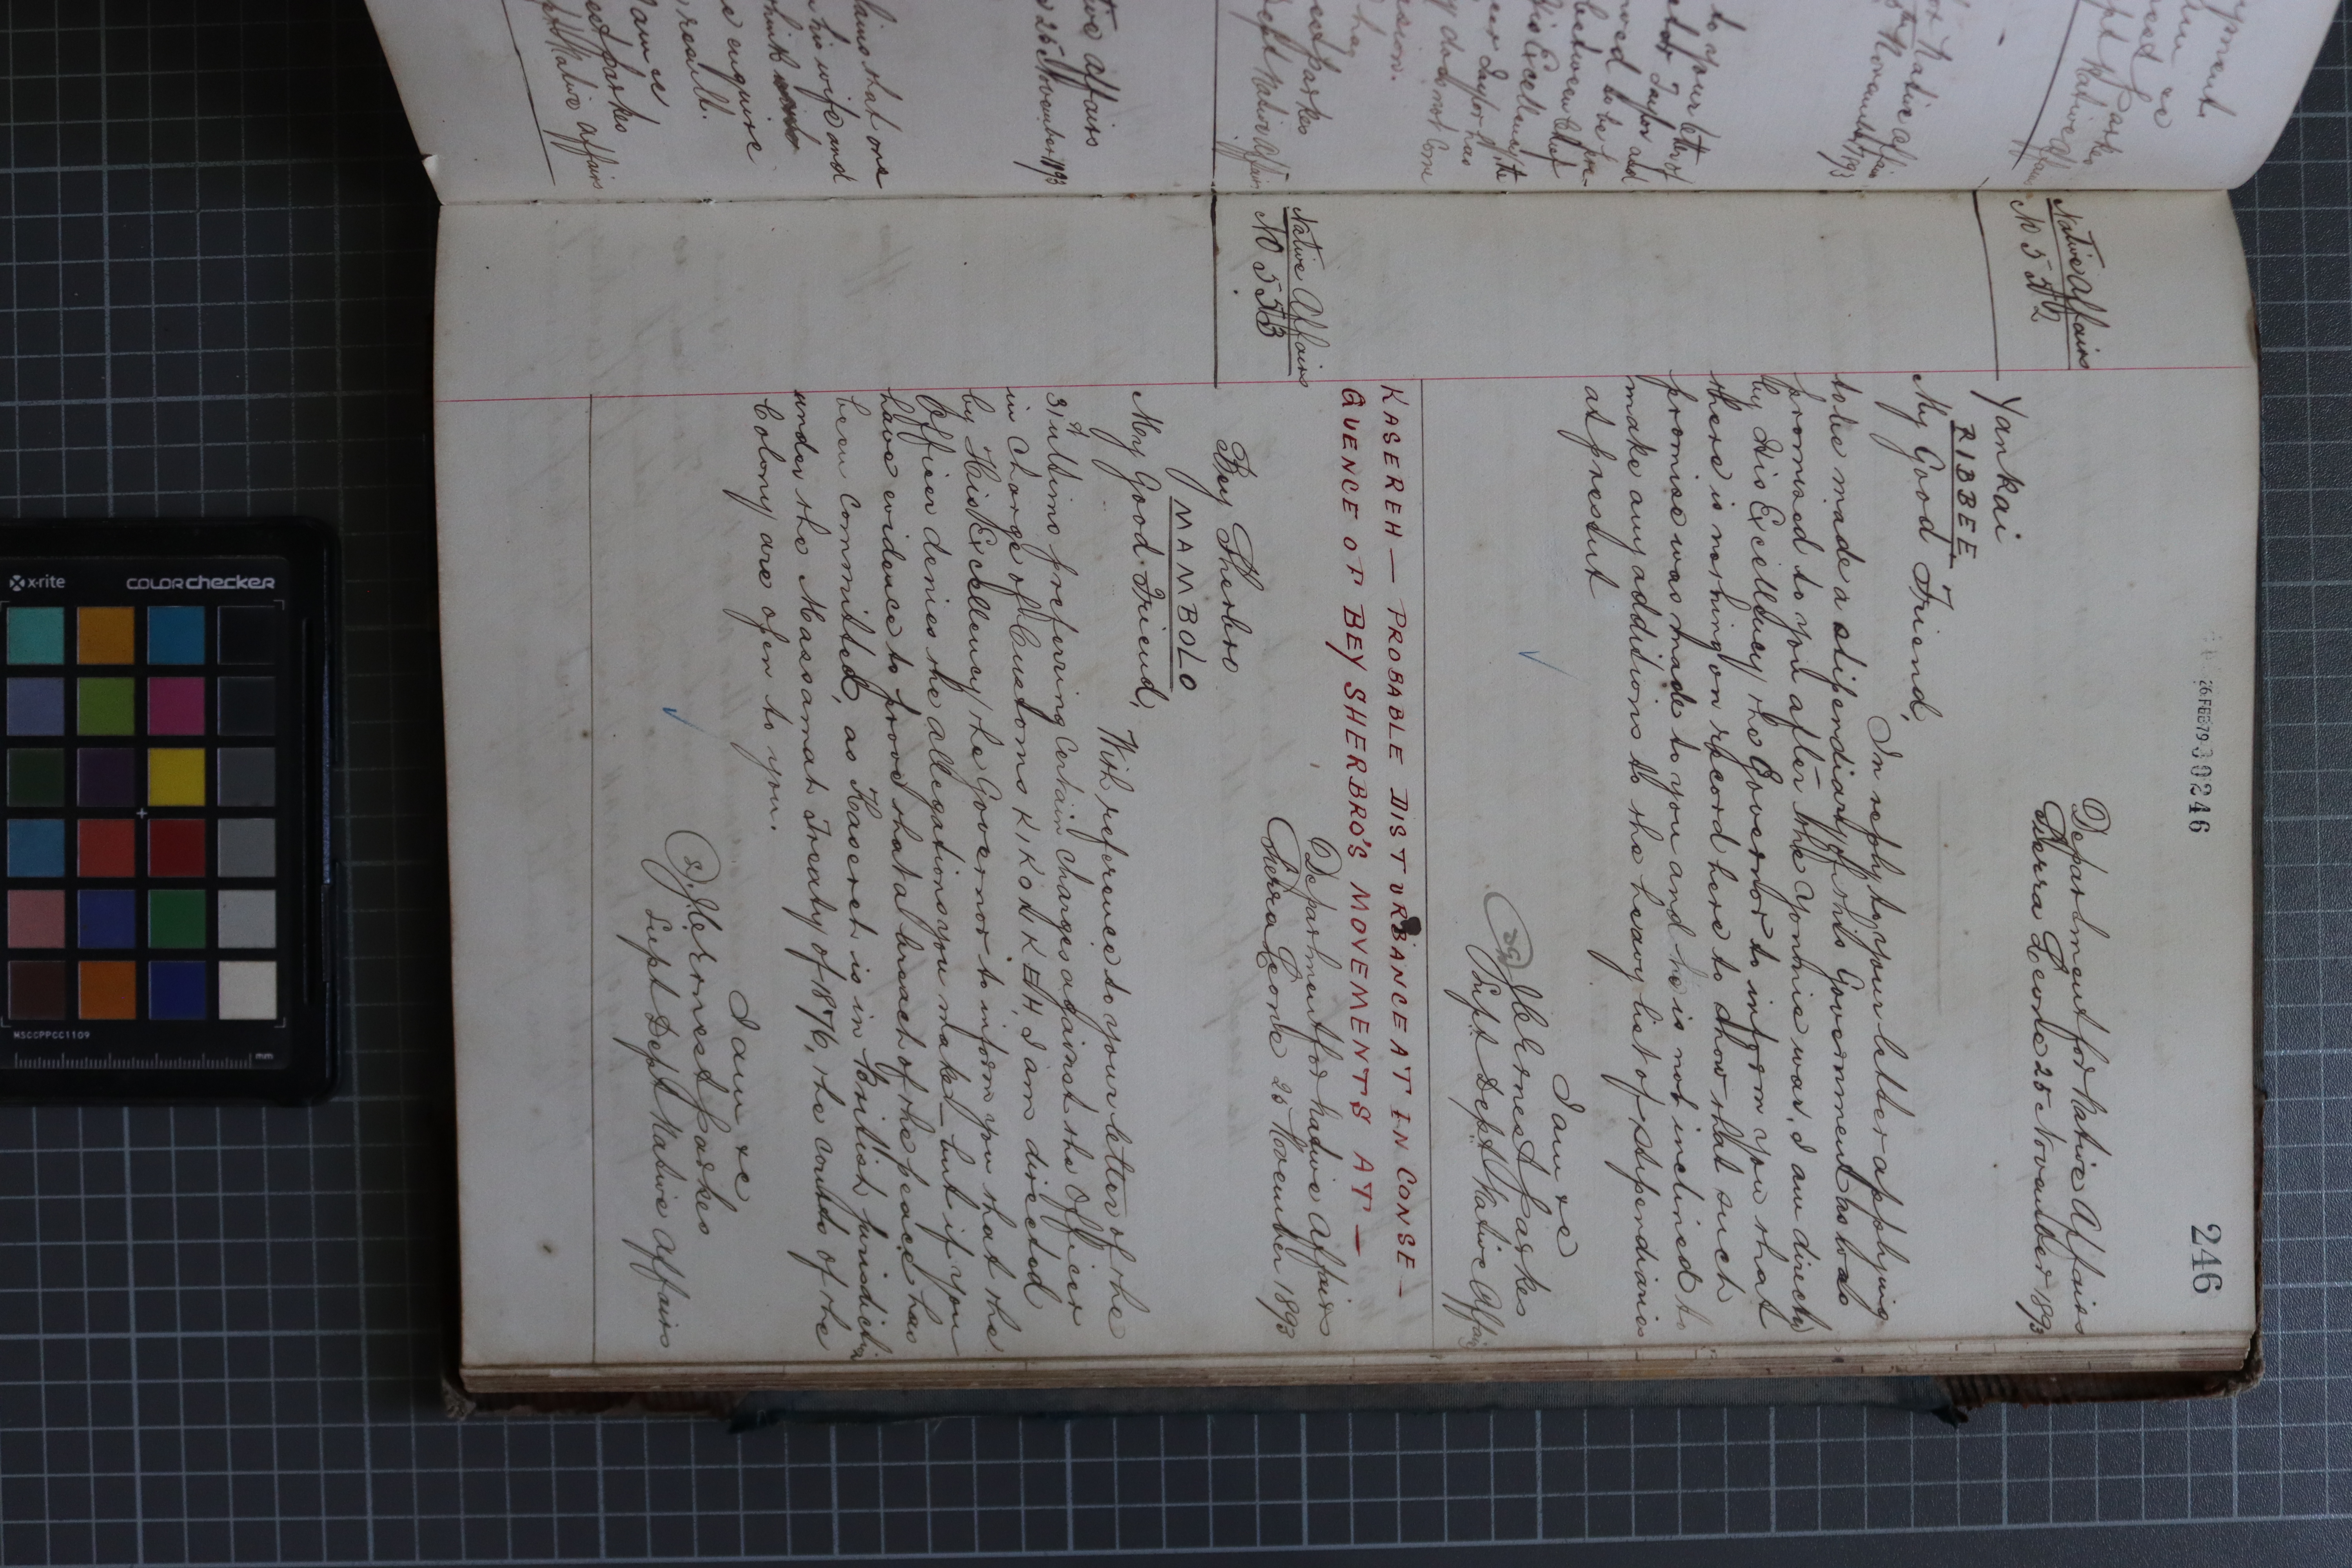 246
26.FEB79 30246
Department for Native Affairs
Sierra Leone 25 November 1893
Native Affairs
No 552
Yankai
RIBBEE
My Good Friend,
In reply to your letter applying
to be made a stipendiary of this Government as was
promised to you after the Yonnie war, I am directed
by His Excellency the Governor to inform you that
there is nothing on record here to show that such
promise was made to you and he is not inclined to
make any additions to the heavy list of stipendiaries
at present
I am &c
J C Ernest Parkes
Supt Dept Native Affairs
KASEREH — PROBABLE DISTURBANCE AT IN CONSE-
QUENCE OF BEY SHERBRO'S MOVEMENTS AT —
Native Affairs
No 553
Department for Native Affairs
Sierra Leone 25 November 1893
Bey Sherbro
MAMBOLO
My Good Friend,
With reference to your letter of the
31st ultimo preferring certain charges against the Officer
in charge of Customs KIKONKEH, I am directed
by His Excellency the Governor to inform you that the
Officer denies the allegations you make — but if you
have evidence to prove that a breach of the peace has
been committed, as Kasereh is in British jurisdiction
under the Massamah Treaty of 1876, the Courts of the
Colony are open to you.
I am &c
J. C. Ernest Parkes
Supt Dept Native Affairs
ive Affairs
25 November 1893
laims that one
his wife and
enquire
result.
I am &c
est Parkes
pt Native Affairs
to your letter of
Taylor and
moved to be
between Chief
His Excellency the
Taylor has
does not come
Dept Native Affairs
for Native Affairs
November 1893
Native Affairs
x-rite
COLORchecker
MSCCPPCC1109
mm